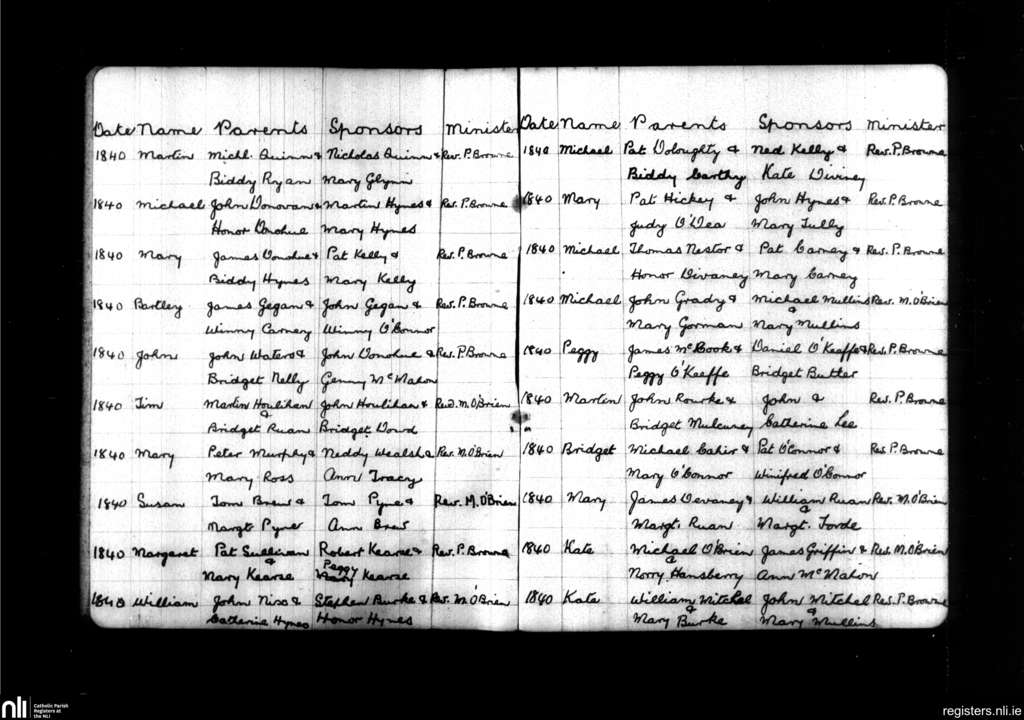 Date Name Parents Sponsors Minister
1840 Martin Michl. Quinn & Nicholas Quinn & Rev. P. Browne
Biddy Ryan Mary Glynn
1840 Michael John Donovan & Martin Hynes & Rev. P. Browne
Honor Donohue Mary Hynes
1840 Mary James Donohue & Pat Kelly & Rev. P. Browne
Biddy Hynes Mary Kelly
1840 Bartley James Gegan & John Gegan & Rev. P. Browne
Winny Carney Winny O'Connor
1840 John John Waters & John Donohue & Rev. P. Browne
Bridget Nelly Genny McMahon
1840 Tim Martin Houlihan John Houlihan & Revd. M. O'Brien
&
Bridget Ruan Bridget Dowd
1840 Mary Peter Murphy & Neddy Wealsh & Rev. M. O'Brien
Mary Ross Ann Tracy
1840 Susan Tom Brew & Tom Pyne & Rev. M. O'Brien
Margt Pyne Ann Brew
1840 Margaret Pat Sullivan Robert Kearse & Rev. P. Browne
& Peggy
Mary Kearse Kearse
1840 William John Nixo & Stephen Burke & Rev. M. O'Brien
Catherine Hynes Honor Hynes
Date Name Parents Sponsors Minister
1840 Michael Pat Doloughty & Ned Kelly & Rev. P. Browne
Biddy Carthy Kate Diviney
1840 Mary Pat Hickey & John Hynes & Rev. P. Browne
Judy O'Dea Mary Tully
1840 Michael Thomas Nestor & Pat Carney & Rev. P. Browne
Honor Divaney Mary Carney
1840 Michael John Grady & Michael Mullins Rev. M. O'Brien
&
Mary Gorman Mary Mullins
1840 Peggy James McCook & Daniel O'Keeffe & Rev. P. Browne
Peggy O'Keeffe Bridget Butler
1840 Martin John Rourke & John & Rev. P. Browne
Bridget Mulcuney Catherine Lee
1840 Bridget Michael Cahir & Pat O'Connor & Rev. P. Browne
Mary O'Connor Winifred O'Connor
1840 Mary James Devaney & William Ruan Rev. M. O'Brien
&
Margt. Ruan Margt. Forde
1840 Kate Michael O'Brien James Griffin & Rev. M. O'Brien
&
Norry Hansberry Ann McMahon
1840 Kate William Mitchel John Mitchel Rev. P. Browne
& &
Mary Burke Mary Mullins
nli Catholic Parish
Registers at
the NLI
registers.nli.ie